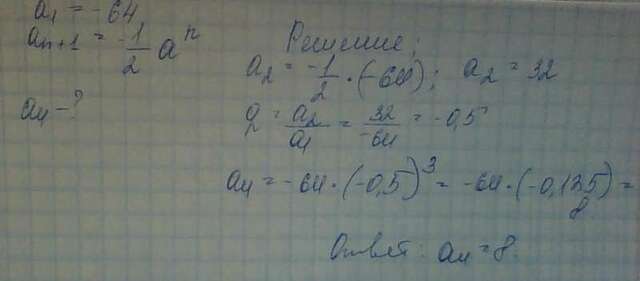 a₁ = -64
aₙ₊₁ = -1/2 aⁿ
a₄ - ?
Решение:
a₂ = -1/2 · (-64); a₂ = 32
q = a₂/a₁ = 32/-64 = -0,5
a₄ = -64 · (-0,5)³ = -64 · (-0,125) =
8
Ответ: a₄ = 8.